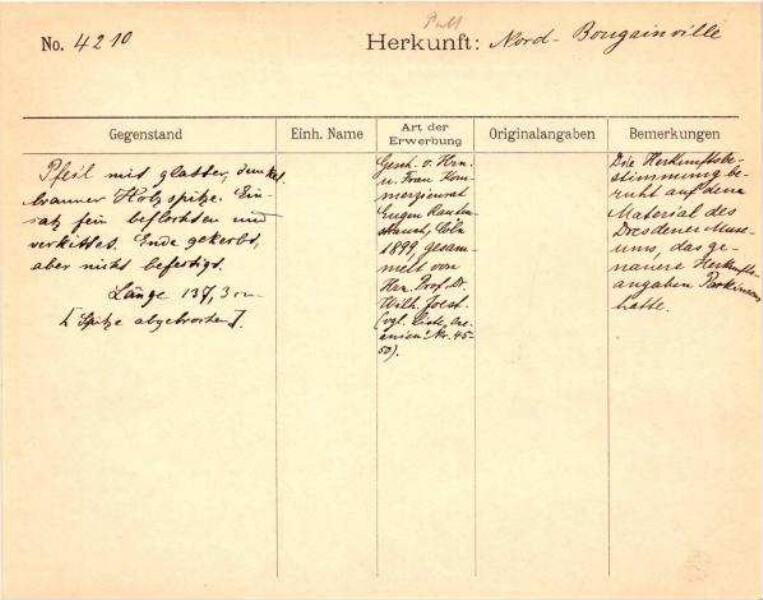 No. 4210
Herkunft: Nord-Bougainville
Gegenstand
Einh. Name
Art der Erwerbung
Originalangaben
Bemerkungen
Pfeil mit glatter, dunkel
brauner Holzspitze. Ein-
satz fein beflochten und
verkittet. Ende gekerbt,
aber nicht befestigt.
Länge 137,3 cm.
[Spitze abgebrochen].
Gesch. v. Hrn.
u. Frau Kom-
merzienrat
Eugen Rauten-
strauch, Cöln
1899, gesam-
melt von
Hrn. Prof. Dr.
Wilh. Joest.
(vgl. Liste "Oze-
anien" Nr. 45-
50).
Die Herkunftsbe-
stimmung be-
ruht auf dem
Material des
Dresdener Muse-
ums, das ge-
nauere Herkunfts-
angaben Parkinsons
hatte.